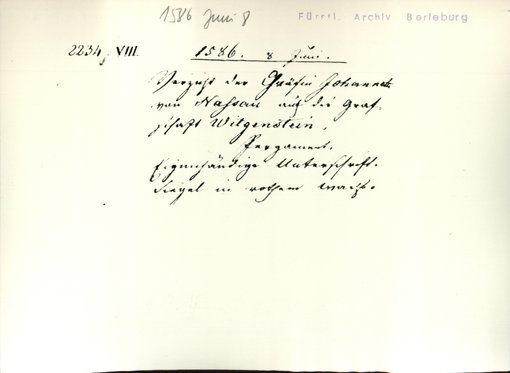 1586 Juni 8
Fürstl. Archiv Berleburg
2234, VIII. 1586. 8 Juni.
Verzicht der Gräfin Johannete
von Nassau auf die Graf-
schaft Witgenstein.
Pergament.
Eigenhändige Unterschrift.
Siegel in rothem Wachs.